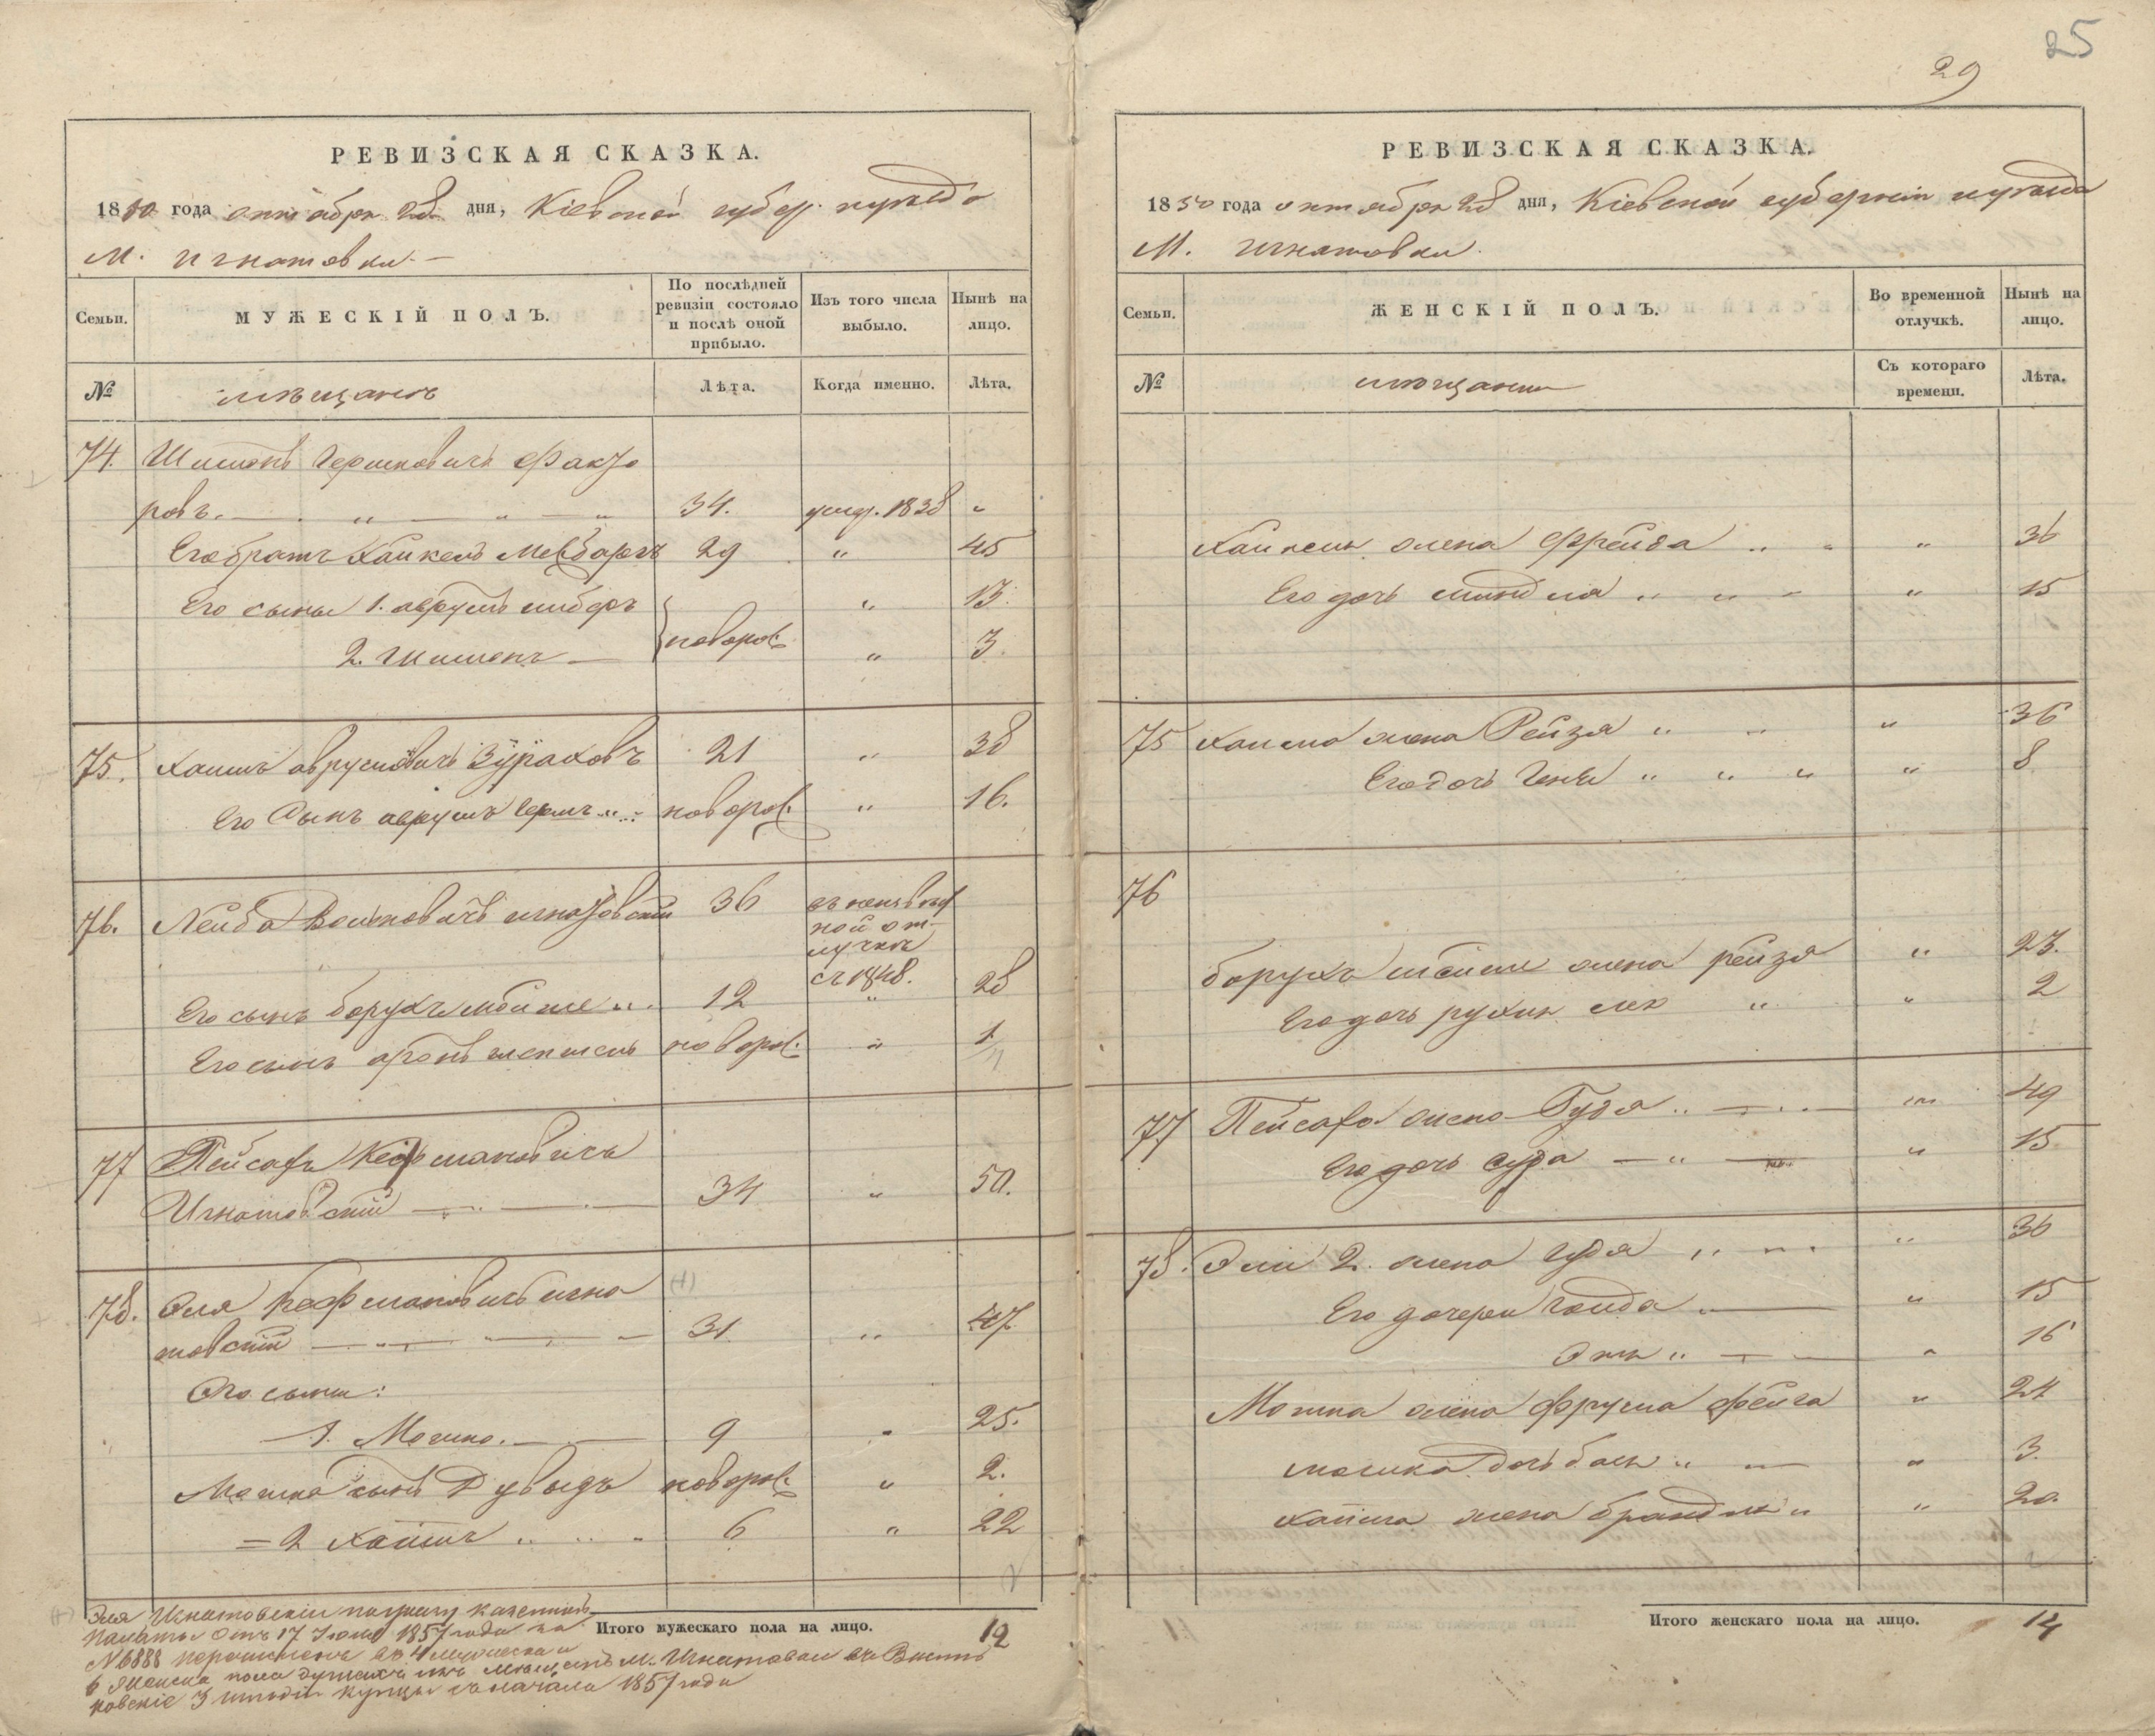 25
29
РЕВИЗСКАЯ СКАЗКА.
1850 года октября 28 дня, Кіевской губер. и уезда
М. Игнатовки.
Семьи.
МУЖЕСКІЙ ПОЛЪ.
По послѣдней ревизіи состояло и послѣ оной прибыло.
Изъ того числа выбыло.
Нынѣ на лицо.
№
мѣщанъ
Лѣта.
Когда именно.
Лѣта.
74. Шимонъ Гершковичъ Факто
ровъ. 34. умер. 1838 "
Его братъ Хайкель 29 " 45
Его сыны 1. Аврумъ " 13
2. Шимонъ новорож: " 3.
75. Хаимъ Аврумовичъ 21 " 38
Его сынъ Аврумъ Гершъ новорож. " 16.
76. Лейба Волковичъ Игнатовскій 36
отлучкѣ
съ 1848.
Его сынъ Борухъ Мойше 12 " 28
Его сынъ новорож: " 1
77 Пейсахъ
Игнатовскій 34 " 50.
78. Эля Игна
товскій 31 " 47
Его сыны:
1. Мошко. 9 " 25.
Мошка сынъ Дувыдъ новорож: " 2.
= 2 Хаимъ 6 " 22
Итого мужескаго пола на лицо. 12
Эля Игнатовскій по указу казенной
палаты отъ 17 1857 года за
№ 6888 перечисленъ въ 4 мужеска и
6 женска пола душахъ изъ мѣщанъ м. Игнатовки въ
3 гильдіи купцы съ начала 1857 года
РЕВИЗСКАЯ СКАЗКА.
1850 года октября 28 дня, Кіевской губерніи и уезда
М. Игнатовки.
Семьи.
ЖЕНСКІЙ ПОЛЪ.
Во временной отлучкѣ.
Нынѣ на лицо.
№
мѣщанки
Съ котораго времени.
Лѣта.
Хайкеля жена Фрейда " 36
Его дочь Миндля " 15
75 Хаима жена Рейзя " 36
Его дочь Геня " 8
76
Боруха Мойше жена Рейзя " 23.
Его дочь " 2
77 Пейсаха жена Гудя " 49
Его дочь Сура " 15
78. Эли 2. жена Гудя " 36
Его дочери " 15
" 16
Мошка жена Фрума Фейга " 24
Мошка дочь Бася " 3.
Хаима жена Брандля " 20.
Итого женскаго пола на лицо. 14